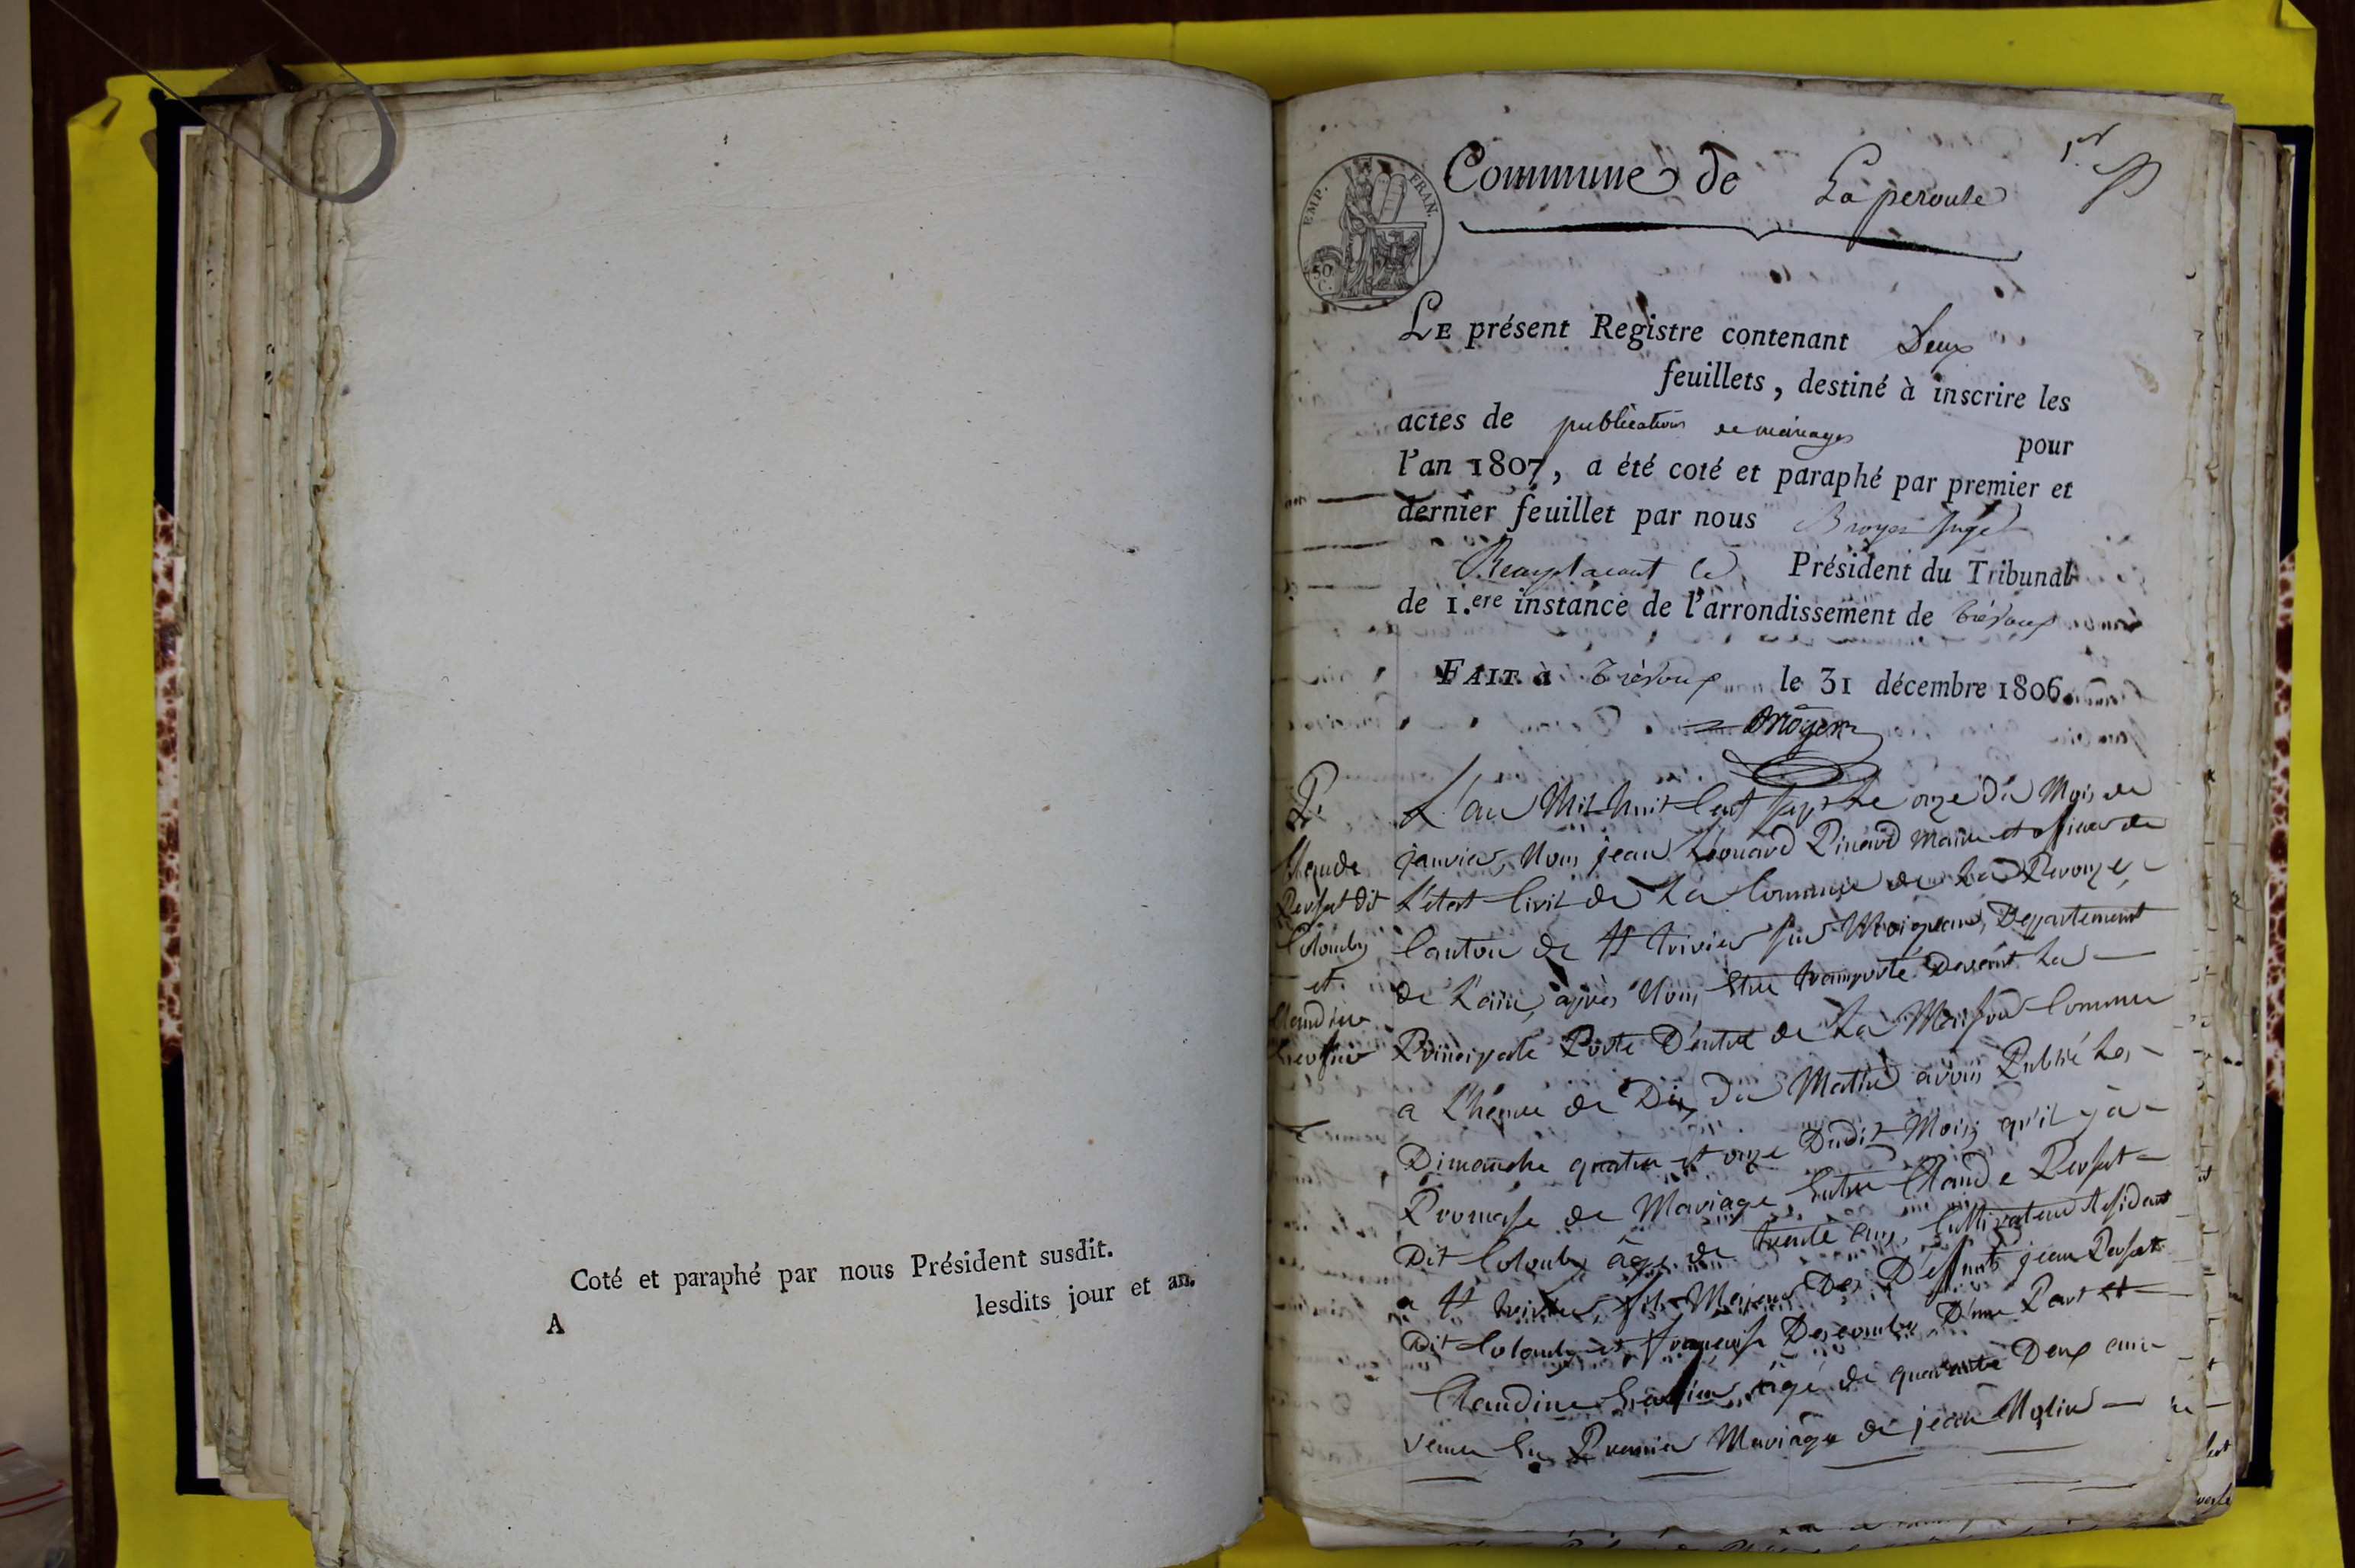 Coté et paraphé par nous Président susdit.
A lesdits jour et an.
EMP. FRAN.
50 C.
Commune de Laperouse
1er
LE présent Registre contenant Deux
feuillets, destiné à inscrire les
actes de publication de mariages pour
l'an 1807, a été coté et paraphé par premier et
dernier feuillet par nous Broyer Juge
Remplacant le Président du Tribunal
de 1.ere instance de l'arrondissement de trévoux
FAIT à Trévoux le 31 décembre 1806.
Claude
Persat dit
Colomby
et
Claudine
L'an Mil huit Cent Sept Le onze du Mois de
janvier, Nous jean Léonard Pinard Maire et officier de
L'état Civil de La Commune de La Perouze,
Canton de St trivier sur Moignans, Departement
de L'ain, après Nous Etre transporté Devant La
Principale Porte D'entré de La Maison Commune
a L'heure de Dix du Matin avons Publié Les
Dimanche quatre et onze Dudit Mois, qu'il y à
Promesse de Mariage Entre Claude Persat
Dit Colomby âgé de trente ans, Cultivateur Residant
a St trivier, fils Majeur Des Deffunts jean Persat
Dit Colomby et francoise Descombe D'une Part et
Claudine âgé de quarante Deux ans
veuve En Premier Mariage de jean